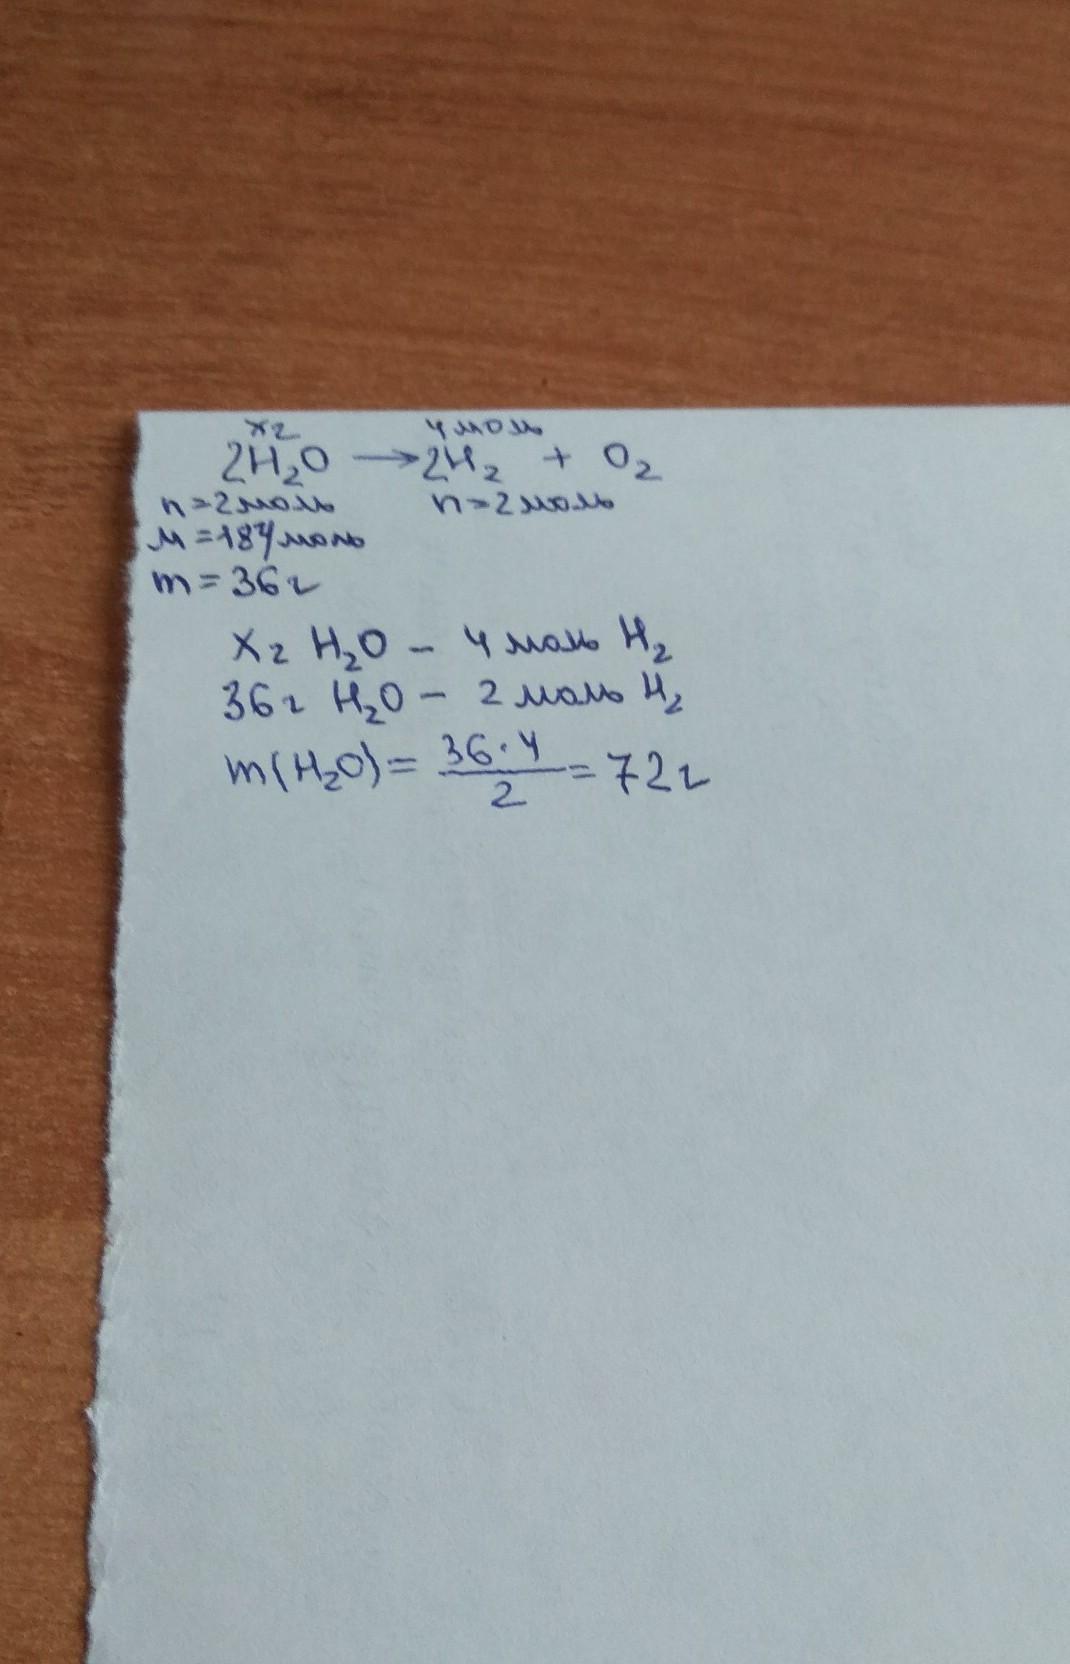 xг 4 моль
2H₂O → 2H₂ + O₂
n=2моль n=2моль
M=18г/моль
m=36г
xг H₂O – 4 моль H₂
36г H₂O – 2 моль H₂
m(H₂O)= 36·4/2 = 72г